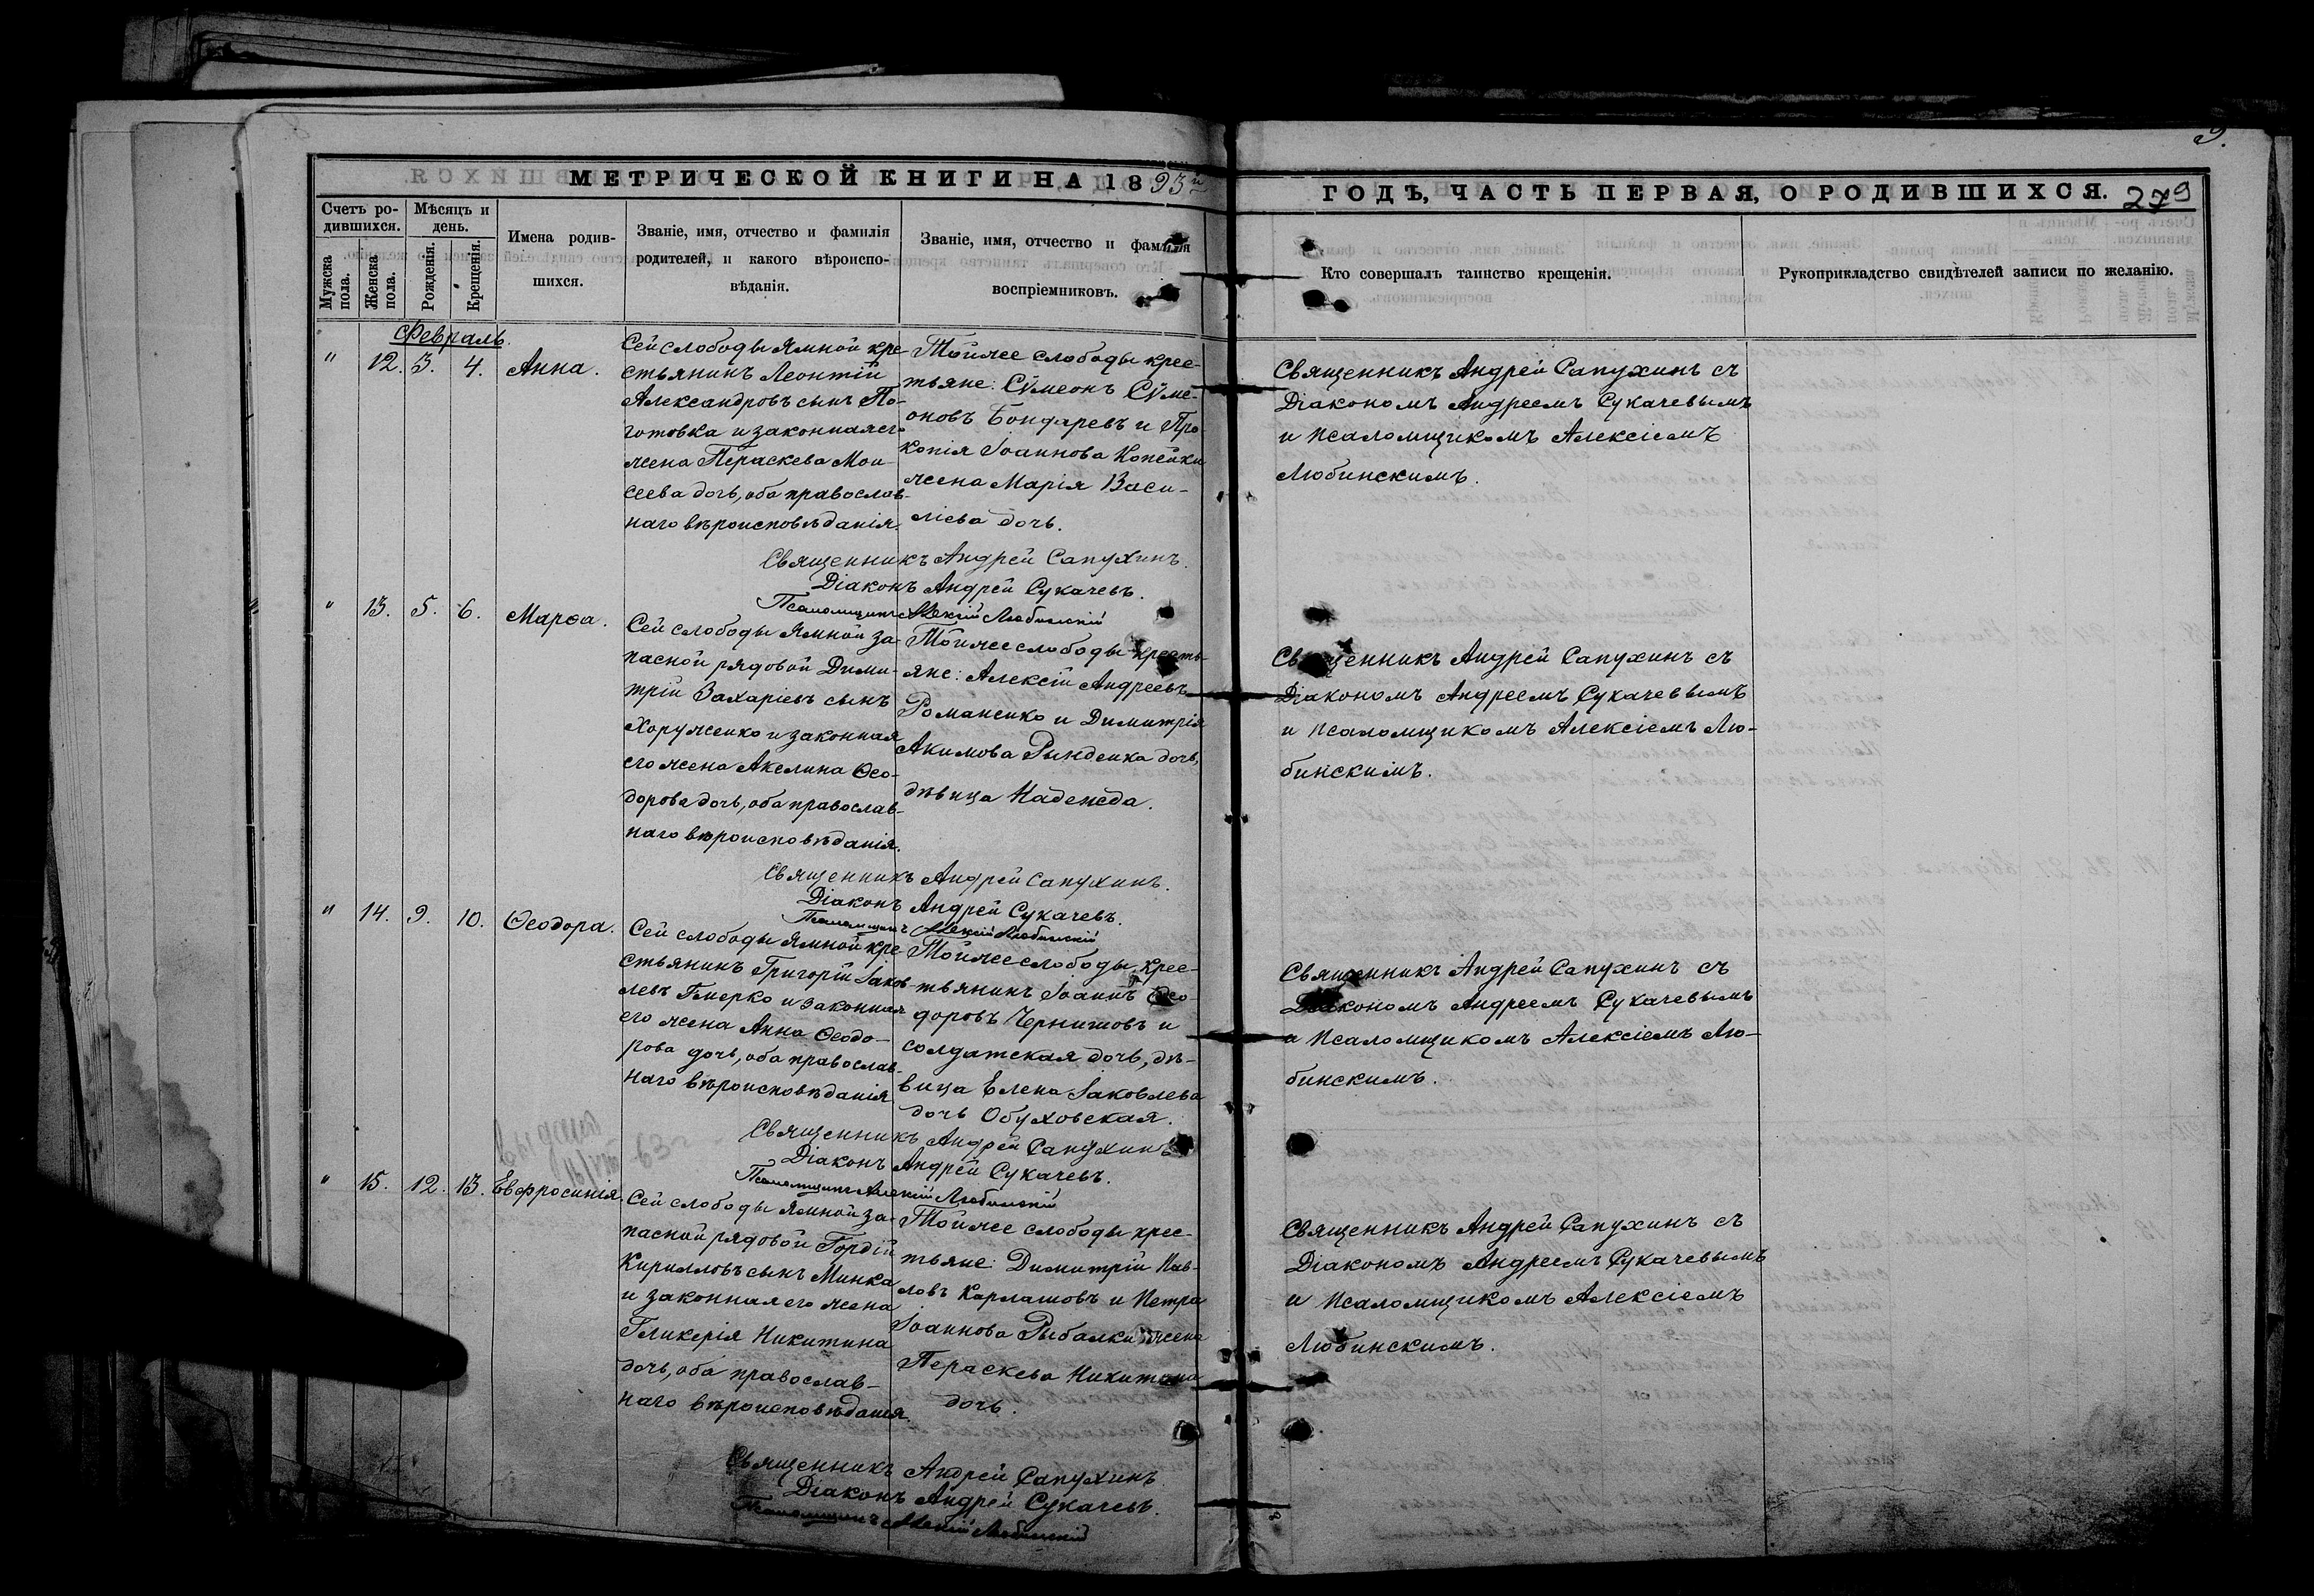 9.
МЕТРИЧЕСКОЙ КНИГИ НА 1893й
ГОДЪ, ЧАСТЬ ПЕРВАЯ, О РОДИВШИХСЯ.
279
Счетъ ро-
дившихся.
Мужска
пола.
Женска
пола.
Мѣсяцъ и
день.
Рожденія.
Крещенія.
Имена родив-
шихся.
Званіе, имя, отчество и фамилія
родителей, и какого вѣроиспо-
вѣданія.
Званіе, имя, отчество и фамилія
воспріемниковъ.
Кто совершалъ таинство крещенія.
Рукоприкладство свидѣтелей записи по желанію.
Февраль.
" 12. 3. 4. Анна.
Сей слободы Ямной кре-
стьянинъ Леонтій
Александровъ сынъ По-
готовка и законная его
жена Параскева Мои-
сеева дочь, оба православ-
наго вѣроисповѣданія.
Той же слободы крес-
тьяне: Сѵмеонъ Сѵме-
оновъ Бондаревъ и Про-
копія Іоаннова Копейки
жена Марія Васи-
ліева дочь.
Священникъ Андрей Сапухинъ съ
Діакономъ Андреемъ Сукачевымъ
и псаломщикомъ Алексіемъ
Любинскимъ.
Священникъ Андрей Сапухинъ.
Діаконъ Андрей Сукачевъ.
Псаломщикъ Алексій Любинскій
" 13. 5. 6. Марѳа.
Сей слободы Ямной за-
пасной рядовой Дими-
трій Захаріевъ сынъ
Хоруженко и законная
его жена Акелина Ѳео-
дорова дочь, оба православ-
наго вѣроисповѣданія.
Той же слободы кресть-
яне: Алексій Андреевъ
Романенко и Димитрія
Акимова Рынденка дочь,
дѣвица Надежда.
Священникъ Андрей Сапухинъ съ
Діакономъ Андреемъ Сукачевымъ
и псаломщикомъ Алексіемъ Лю-
бинскимъ.
Священникъ Андрей Сапухинъ.
Діаконъ Андрей Сукачевъ.
Псаломщикъ Алексій Любинскій
" 14. 9. 10. Ѳеодора.
Сей слободы Ямной кре-
стьянинъ Григорій Іаков-
левъ Гмерко и законная
его жена Анна Ѳеодо-
рова дочь, оба православ-
наго вѣроисповѣданія
Той же слободы крес-
тьянинъ Іоаннъ Ѳео-
доровъ Чернишовъ и
солдатская дочь, дѣ-
вица Елена Іаковлева
дочь Обуховская.
Священникъ Андрей Сапухинъ съ
Діакономъ Андреемъ Сукачевымъ
и псаломщикомъ Алексіемъ Лю-
бинскимъ.
Священникъ Андрей Сапухинъ
Діаконъ Андрей Сукачевъ.
Псаломщикъ Алексій Любинскій
Выдано
63 г
" 15. 12. 13. Евфросинія.
Сей слободы Ямной за-
пасной рядовой Гордій
Кирилловъ сынъ Минка
и законная его жена
Гликерія Никитина
дочь, оба православ-
наго вѣроисповѣданія.
Той же слободы крес-
тьяне: Димитрій Пав-
ловъ Карлашовъ и Петра
Іоаннова Рыбалки жена
Параскева Никитина
дочь.
Священникъ Андрей Сапухинъ съ
Діакономъ Андреемъ Сукачевымъ
и псаломщикомъ Алексіемъ
Любинскимъ.
Священникъ Андрей Сапухинъ
Діаконъ Андрей Сукачевъ.
Псаломщикъ Алексій Любинскій